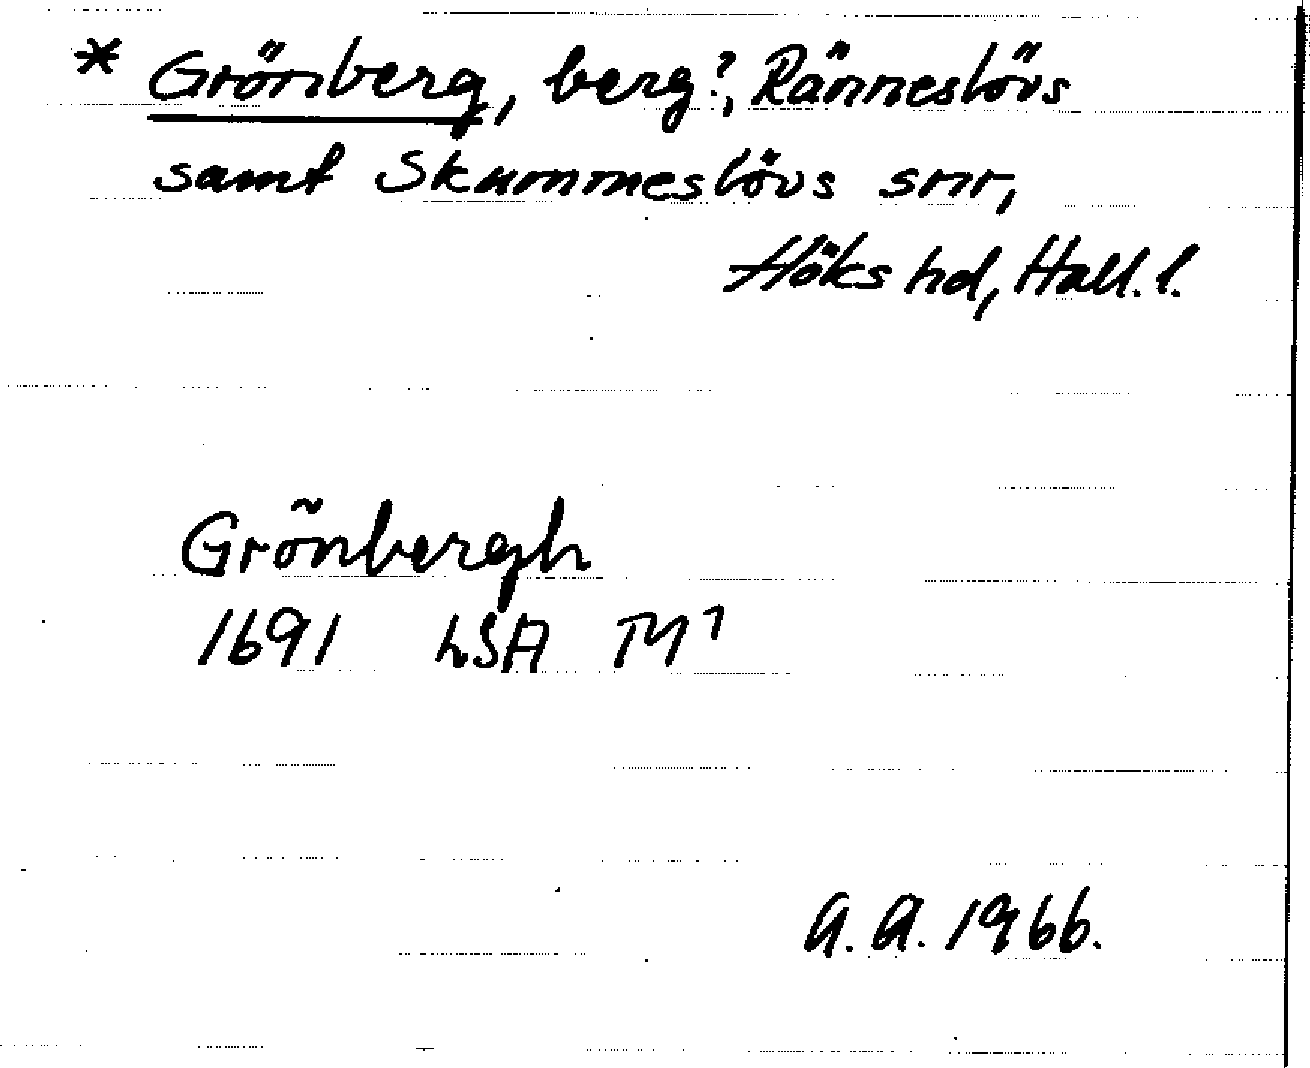 * Grönberg, berg?, Ränneslövs
samt Skummeslövs snr,
Höks hd, Hall. l.
Grõnbergh
1691 LSA M¹
A. A. 1966.